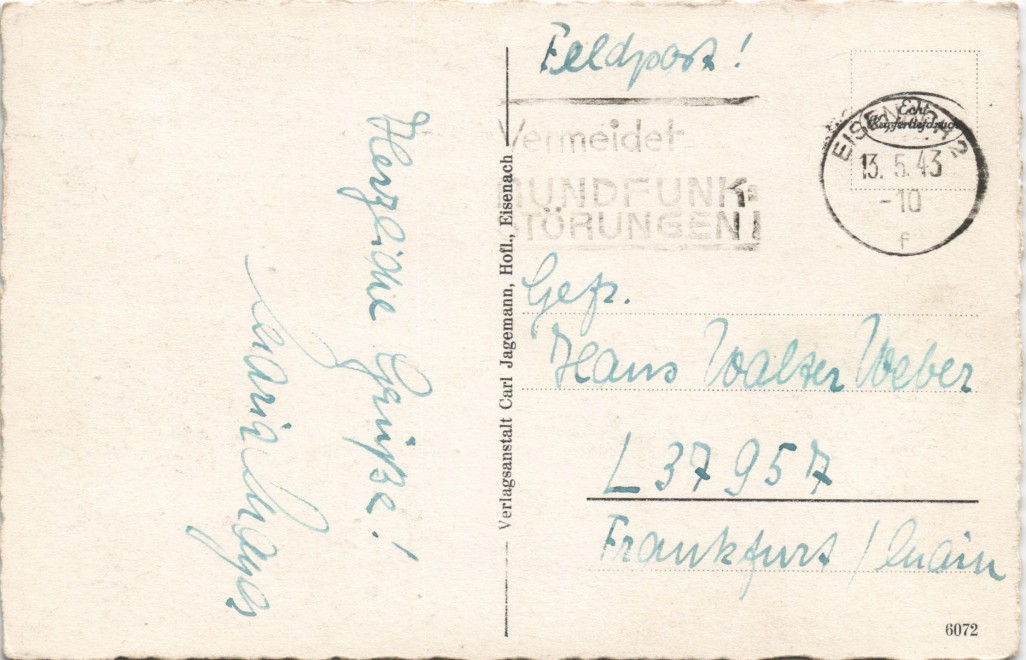 Feldpost!
Vermeidet
RUNDFUNK=
STÖRUNGEN!
Echt
Kupfertiefdruck
EISENACH 2
13. 5. 43
-10
f
Herzliche Grüße!
Maria Mayer
Verlagsanstalt Carl Jagemann, Hofl., Eisenach
Gefr.
Hans Walter Weber
L 37957
Frankfurt / Main
6072